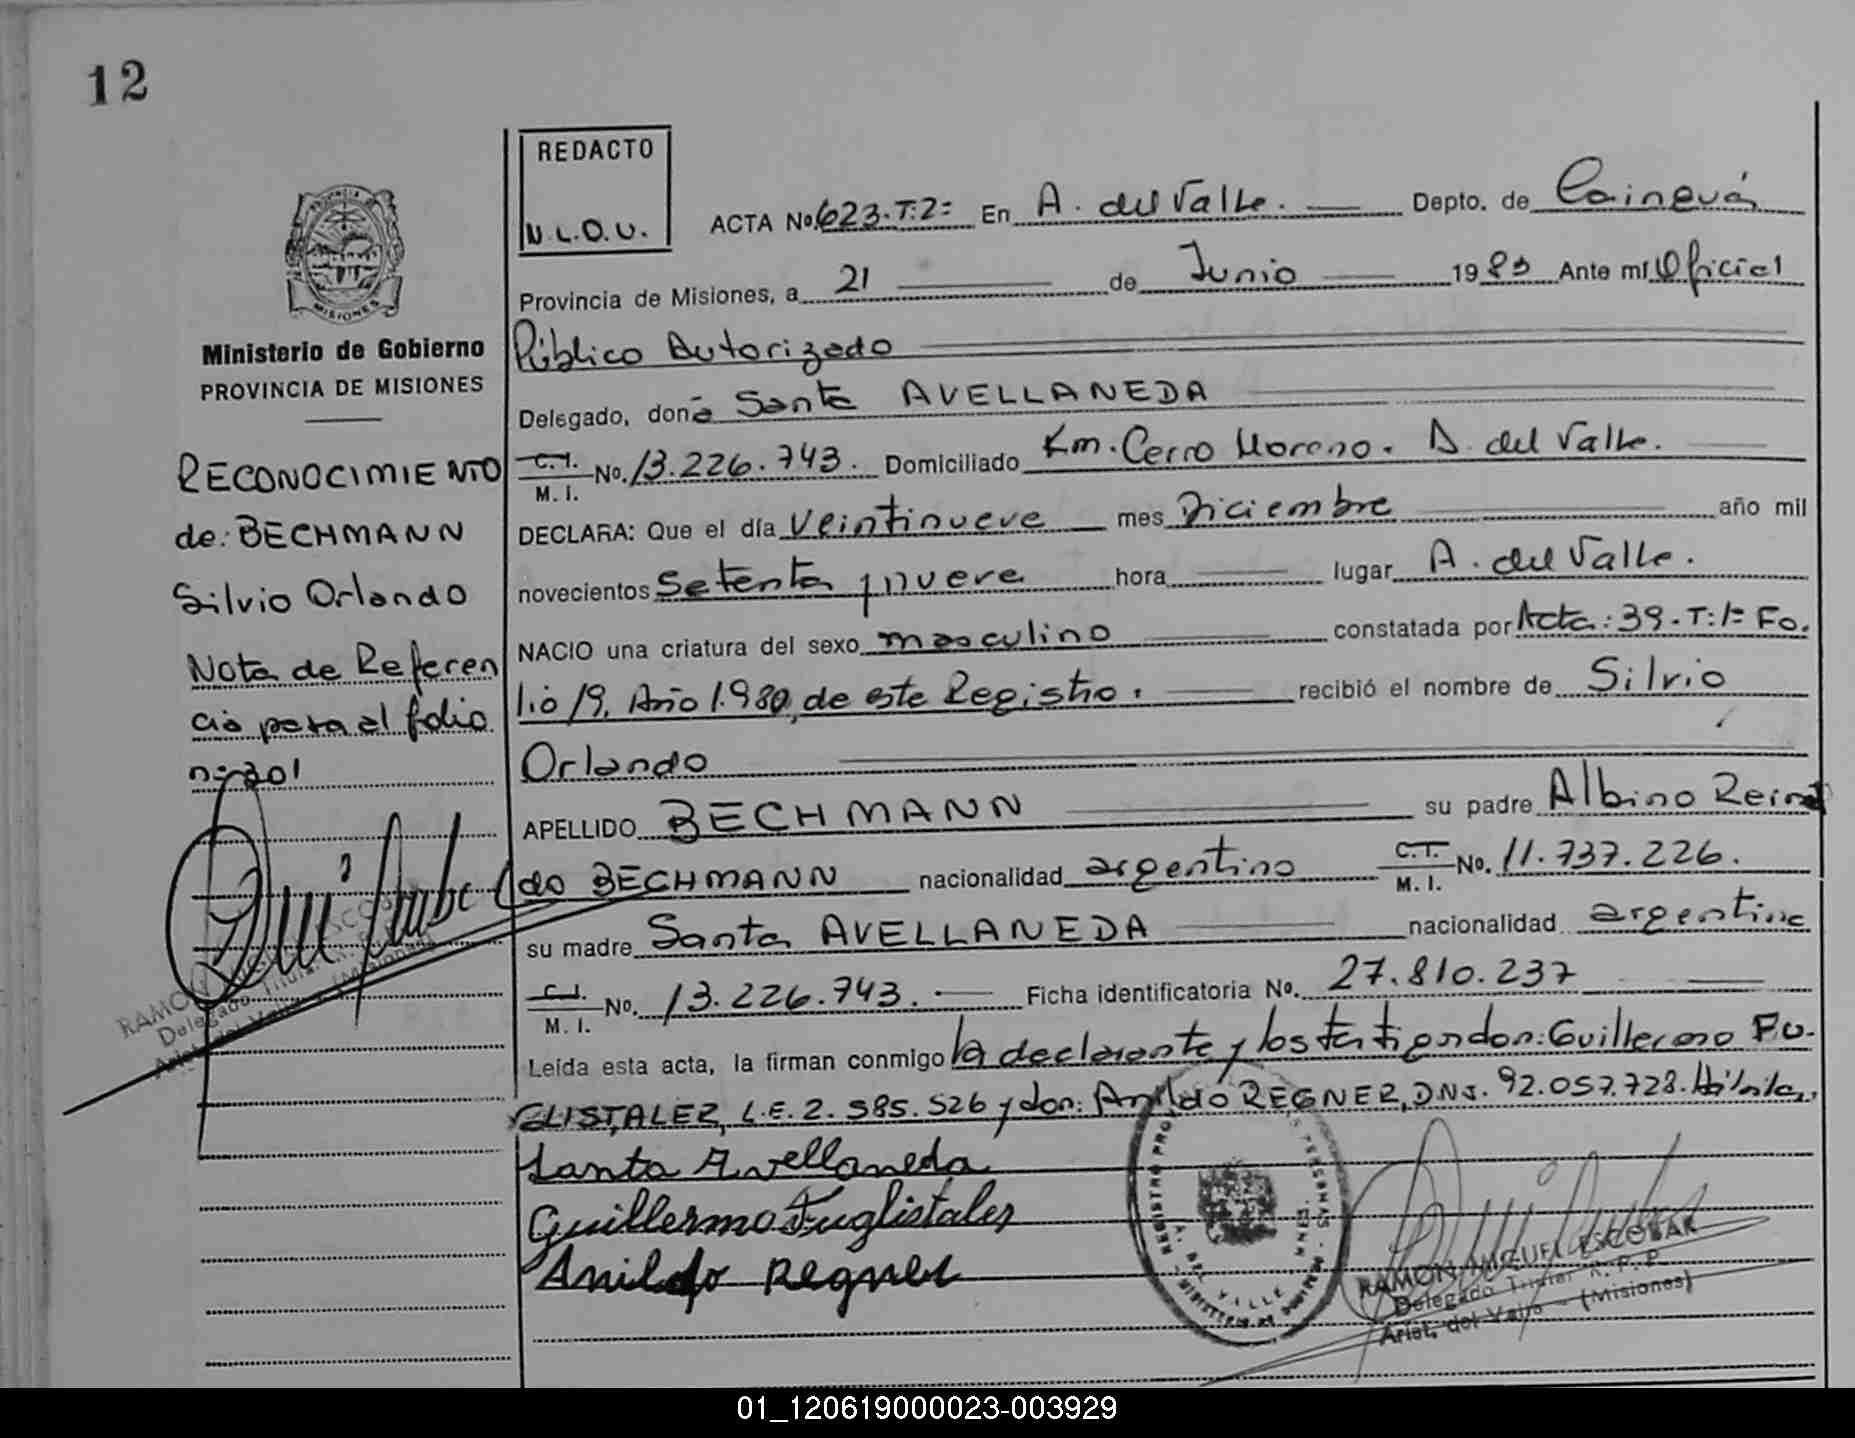 12
REDACTO
N.L.O.U.
ACTA No. 623.T:2= En A. del Valle. Depto. de Cainguá
Provincia de Misiones, a 21 de Junio 1983 Ante mí Oficial
Público Autorizado
Delegado, doña Santa AVELLANEDA
C.I. M. I. No. 13.226.743. Domiciliado Km. Cerro Moreno. A. del Valle.
DECLARA: Que el día veintinueve mes Diciembre año mil
novecientos Setenta y nueve hora lugar A. del Valle.
NACIO una criatura del sexo masculino constatada por Acta: 39. T:1= Fo.
lio 19, Año 1.980, de este Registro. recibió el nombre de Silvio
Orlando
APELLIDO BECHMANN su padre Albino Reinal
do BECHMANN nacionalidad argentino C.I. M. I. No. 11.737.226.
su madre Santa AVELLANEDA nacionalidad argentina
C.I. M. I. No. 13.226.743. Ficha identificatoria No. 27.810.237
Leída esta acta, la firman conmigo la declarante y los testigos don: Guillermo FU-
GLISTALER, L.E. 2.585.526 y don: Anildo REGNER, DNI. 92.057.728.
Santa Avellaneda
Guillermo Fuglistaler
Anildo Regner
Ministerio de Gobierno
PROVINCIA DE MISIONES
RECONOCIMIENTO
de: BECHMANN
Silvio Orlando
Nota de Referen
cia para el folio
nº 201
RAMON MIGUEL ESCOBAR
Delegado Titular R. P. P.
Arist. del Valle - (Misiones)
01_120619000023-003929